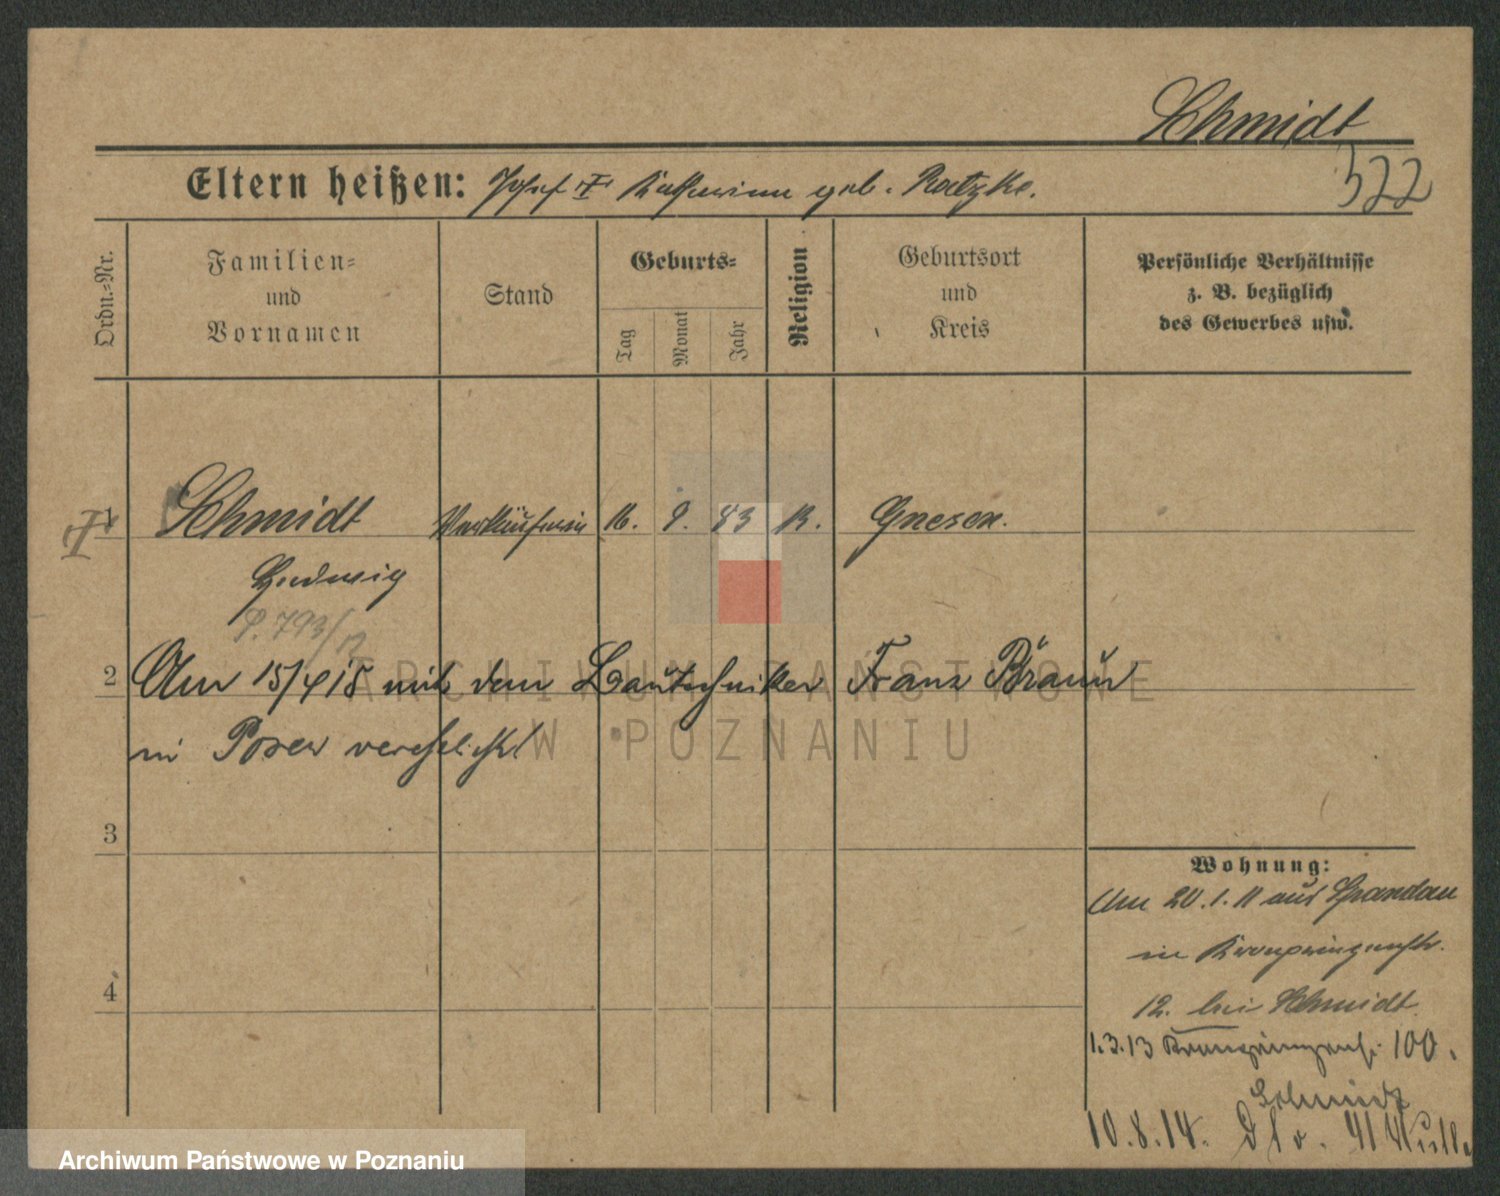 Schmidt
522
Eltern heißen: Josef I Katharina geb. Ratzke.
Ordn.-Nr.
Familien-
und
Vornamen
Stand
Geburts-
Tag
Monat
Jahr
Religion
Geburtsort
und
Kreis
Persönliche Verhältnisse
z. B. bezüglich
des Gewerbes usw.
1 Schmidt Verkäuferin 16. 9. 83 K. Gnesen.
Hedwig
P. 793/
2 Am 15/4 18 mit dem Bautechniker Franz Braun
in Posen verehelicht
3
4
Wohnung:
Am 20.1.11 aus Spandau
in Kronprinzenstr.
12. bei Schmidt.
1.3.13 Kronprinzenstr. 100.
Schmidt
10.8.14. 41
ARCHIWUM PAŃSTWOWE
W POZNANIU
Archiwum Państwowe w Poznaniu